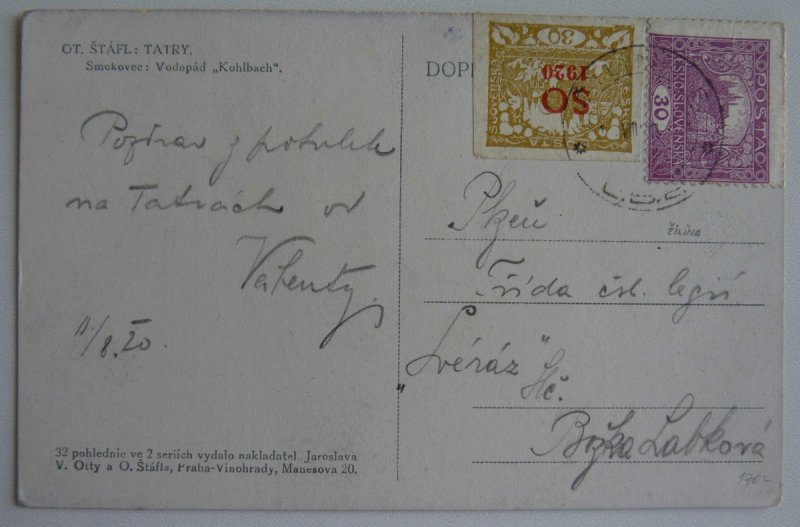 OT. ŠTÁFL: TATRY.
Smokovec: Vodopád „Kohlbach".
Pozdrav z potulek
na Tatrách od
Valenty.
11/8.20
32 pohlednic ve 2 seriích vydalo nakladatel. Jaroslava
V. Otty a O. Štáfla, Praha-Vinohrady, Manesova 20.
DOPI
30
SO
1920
POŠTA
ČESKO-SLOVENSKÁ
30
Plzeň
ŽILINA
Třída čsl. legií
„Svéráz"
Slč.
Božka Labková
170-